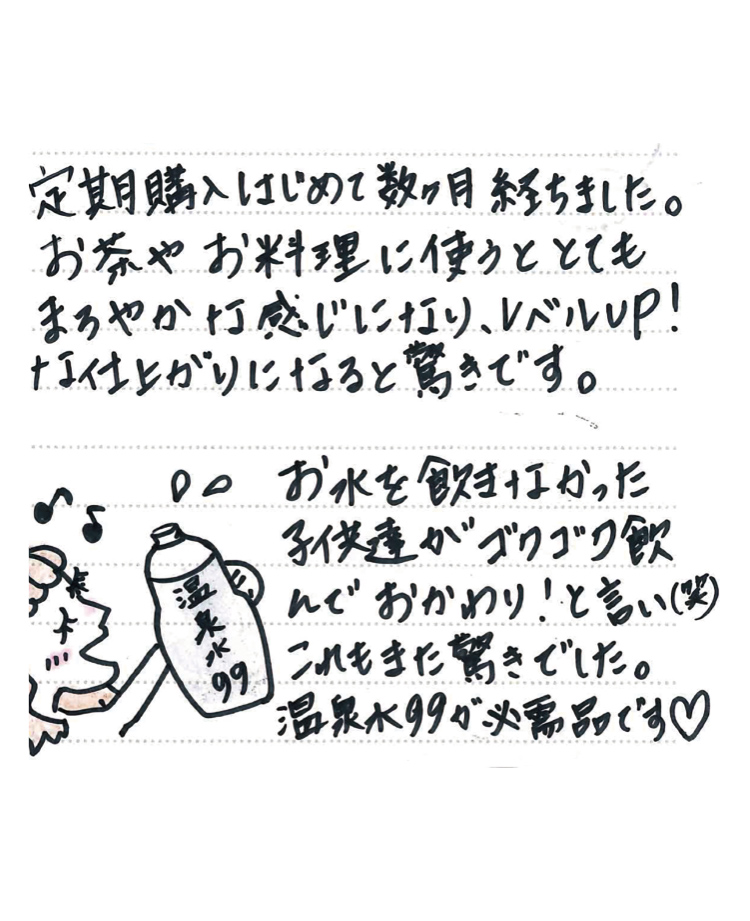 定期購入はじめて数ヶ月経ちました。
お茶や お料理に使うと とても
まろやかな感じになり、レベルUP!
な仕上がりになると驚きです。
お水を飲まなかった
子供達がゴクゴク飲
んで おかわり!と言い(笑)
これもまた驚きでした。
温泉水99が必需品です♡
温泉水99